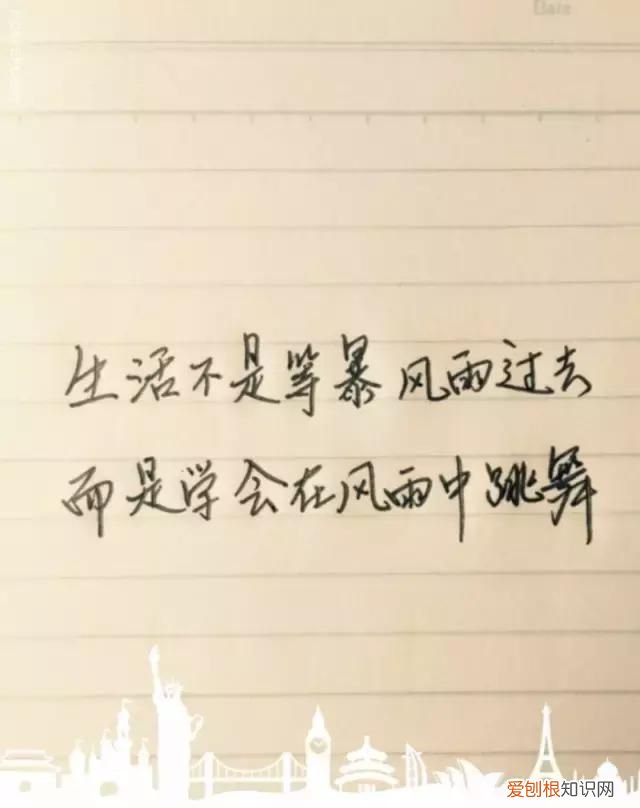 Date
生活不是等暴风雨过去
而是学会在风雨中跳舞
爱刨根知识网